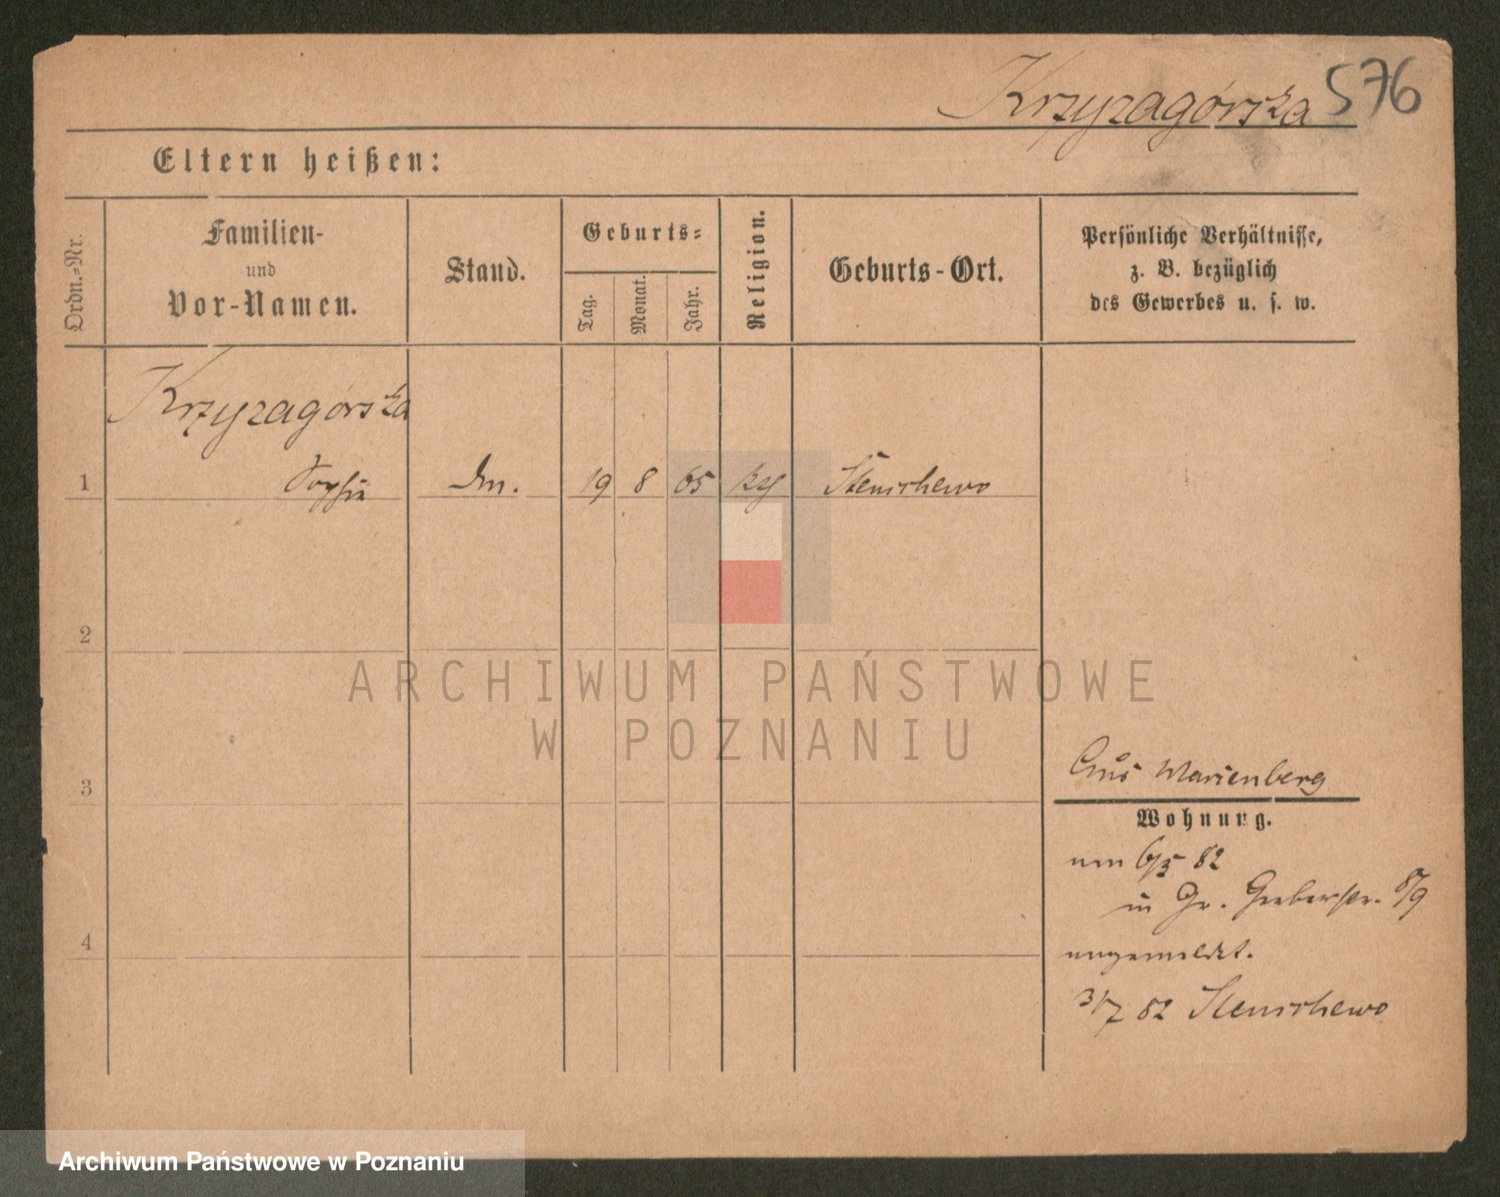 Krzyzagórska 576
Eltern heißen:
Ordn.-Nr.
Familien-
und
Vor-Namen.
Stand.
Geburts-
Tag.
Monat.
Jahr.
Religion.
Geburts-Ort.
Persönliche Verhältnisse,
z. B. bezüglich
des Gewerbes u. s. w.
Krzyzagórska
1 Sophie 19 8 65 Stenschewo
2
ARCHIWUM PAŃSTWOWE
W POZNANIU
3
Aus Marienberg
Wohnung.
82
in Gr. Gerberstr. 8/9
angemeldet.
82 Stenschewo
4
Archiwum Państwowe w Poznaniu